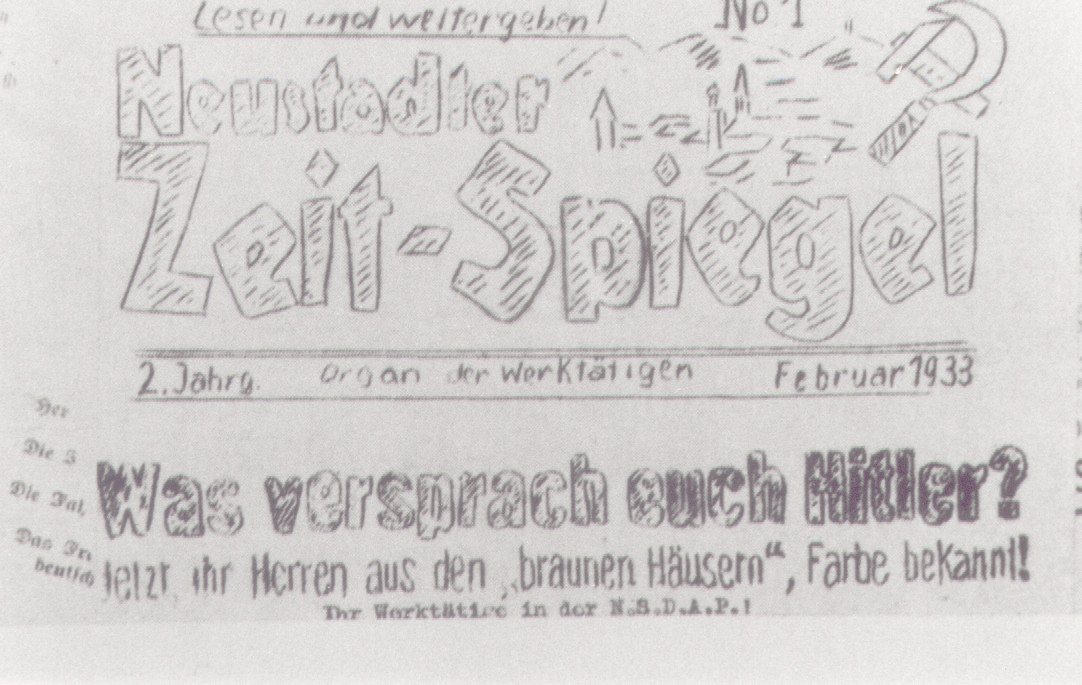 Lesen und weitergeben!
No 1
Neustadter
Zeit-Spiegel
2. Jahrg. Organ der Werktätigen Februar 1933
Her
Die
Die
Das
Was versprach euch Hitler?
Jetzt ihr Herren aus den „braunen Häusern“, Farbe bekannt!
Ihr Werktätige in der N.S.D.A.P.!